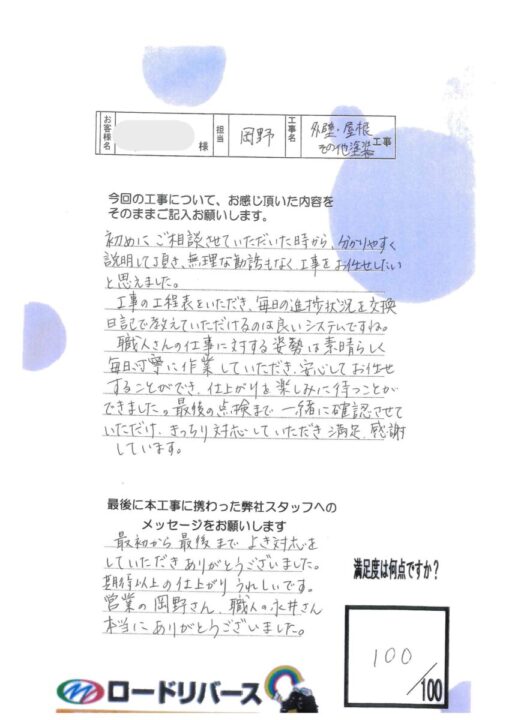 お客様名 様 担当 岡野 工事名 外壁・屋根 その他塗装 工事
今回の工事について、お感じ頂いた内容を
そのままご記入お願いします。
初めにご相談させていただいた時から、分かりやすく
説明して頂き、無理な勧誘もなく工事をお任せしたい
と思えました。
工事の工程表をいただき、毎日の進捗状況を交換
日記で教えていただけるのは良いシステムですね。
職人さんの仕事に対する姿勢は素晴らしく
毎日丁寧に作業していただき、安心してお任せ
することができ、仕上がりを楽しみに待つことが
できました。最後の点検まで一緒に確認させて
いただけ、きっちり対応していただき満足、感謝
しています。
最後に本工事に携わった弊社スタッフへの
メッセージをお願いします
最初から最後までよき対応を
していただきありがとうございました。
期待以上の仕上がりうれしいです。
営業の岡野さん、職人の永井さん
本当にありがとうございました。
満足度は何点ですか？
100/100
ロードリバース